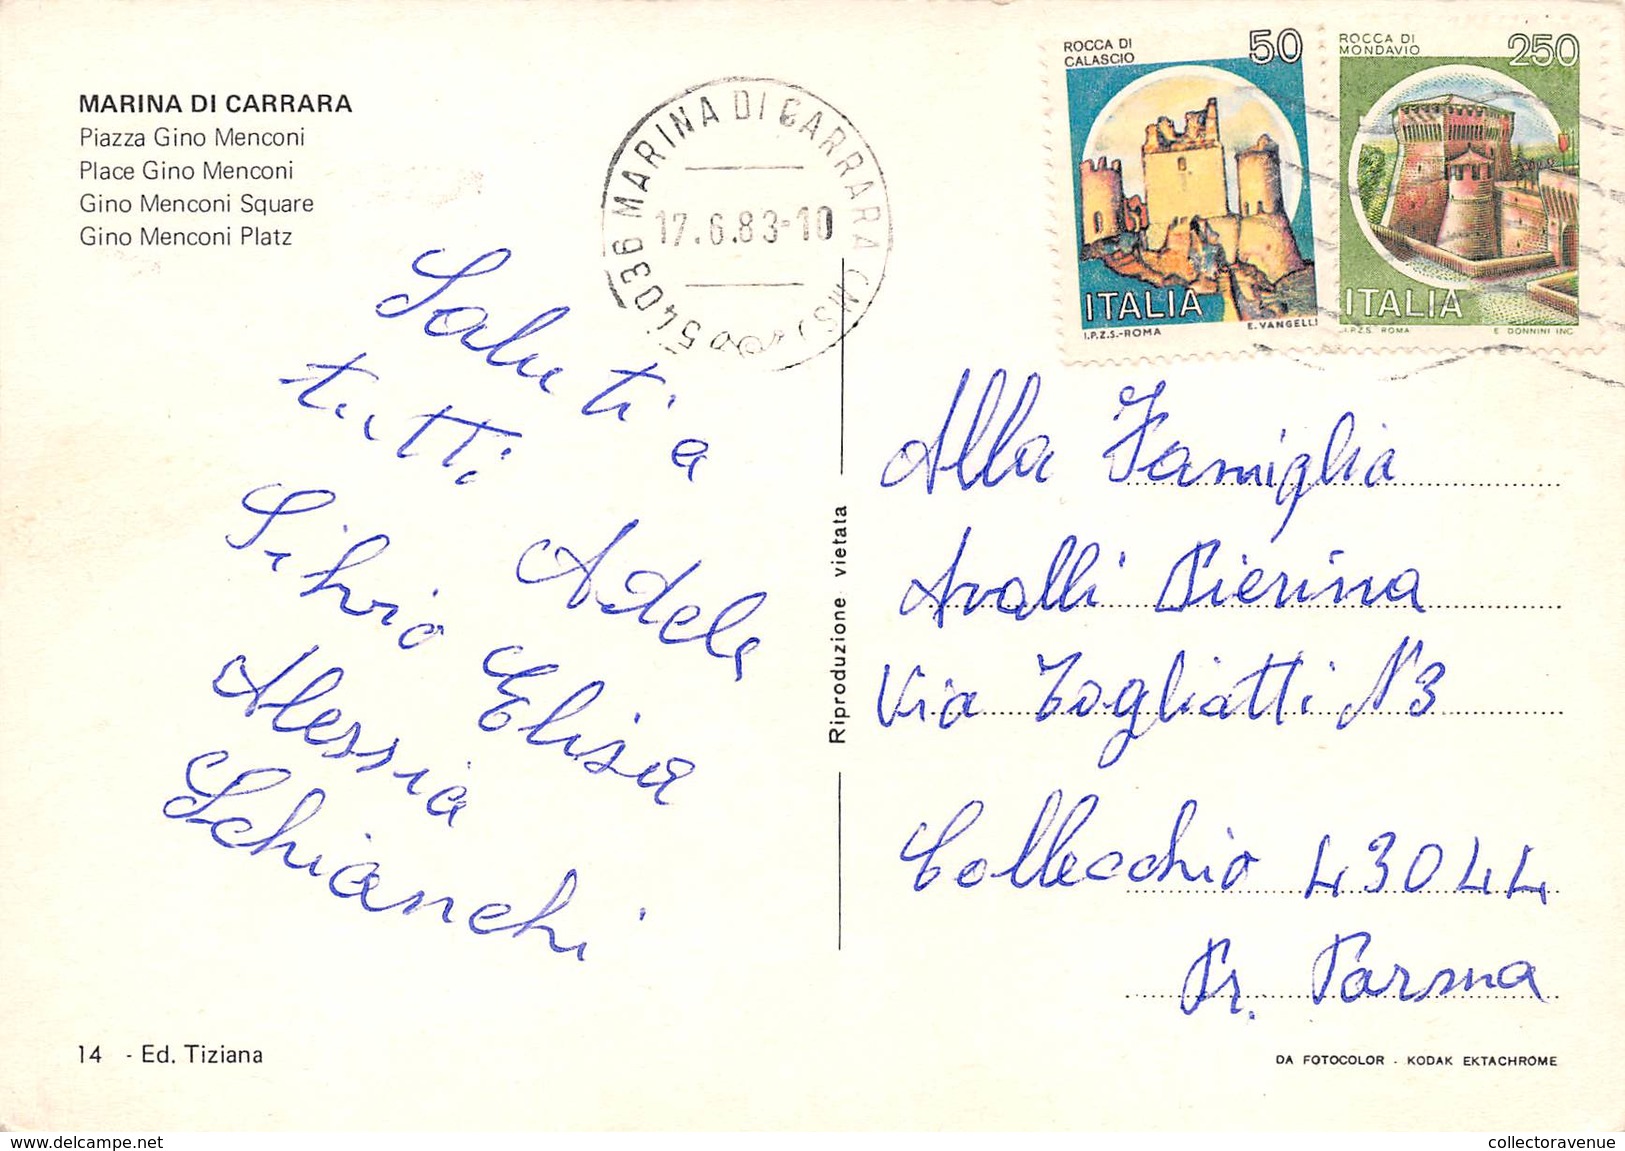 MARINA DI CARRARA
Piazza Gino Menconi
Place Gino Menconi
Gino Menconi Square
Gino Menconi Platz
54036 MARINA DI CARRARA (MS)
17.6.83-10
ROCCA DI
CALASCIO
50
ITALIA
I.P.Z.S.-ROMA
E. VANGELLI
ROCCA DI
MONDAVIO
250
ITALIA
I.P.Z.S. ROMA
E DONNINI INC
Saluti a
tutti
Silvio Adele
Alessia Elisa
Schianchi
Riproduzione vietata
Alla Famiglia
Avalli Pierina
Via Togliatti N 3
Collecchio 43044
Pr. Parma
14 - Ed. Tiziana
DA FOTOCOLOR - KODAK EKTACHROME
www.delcampe.net
collectoravenue